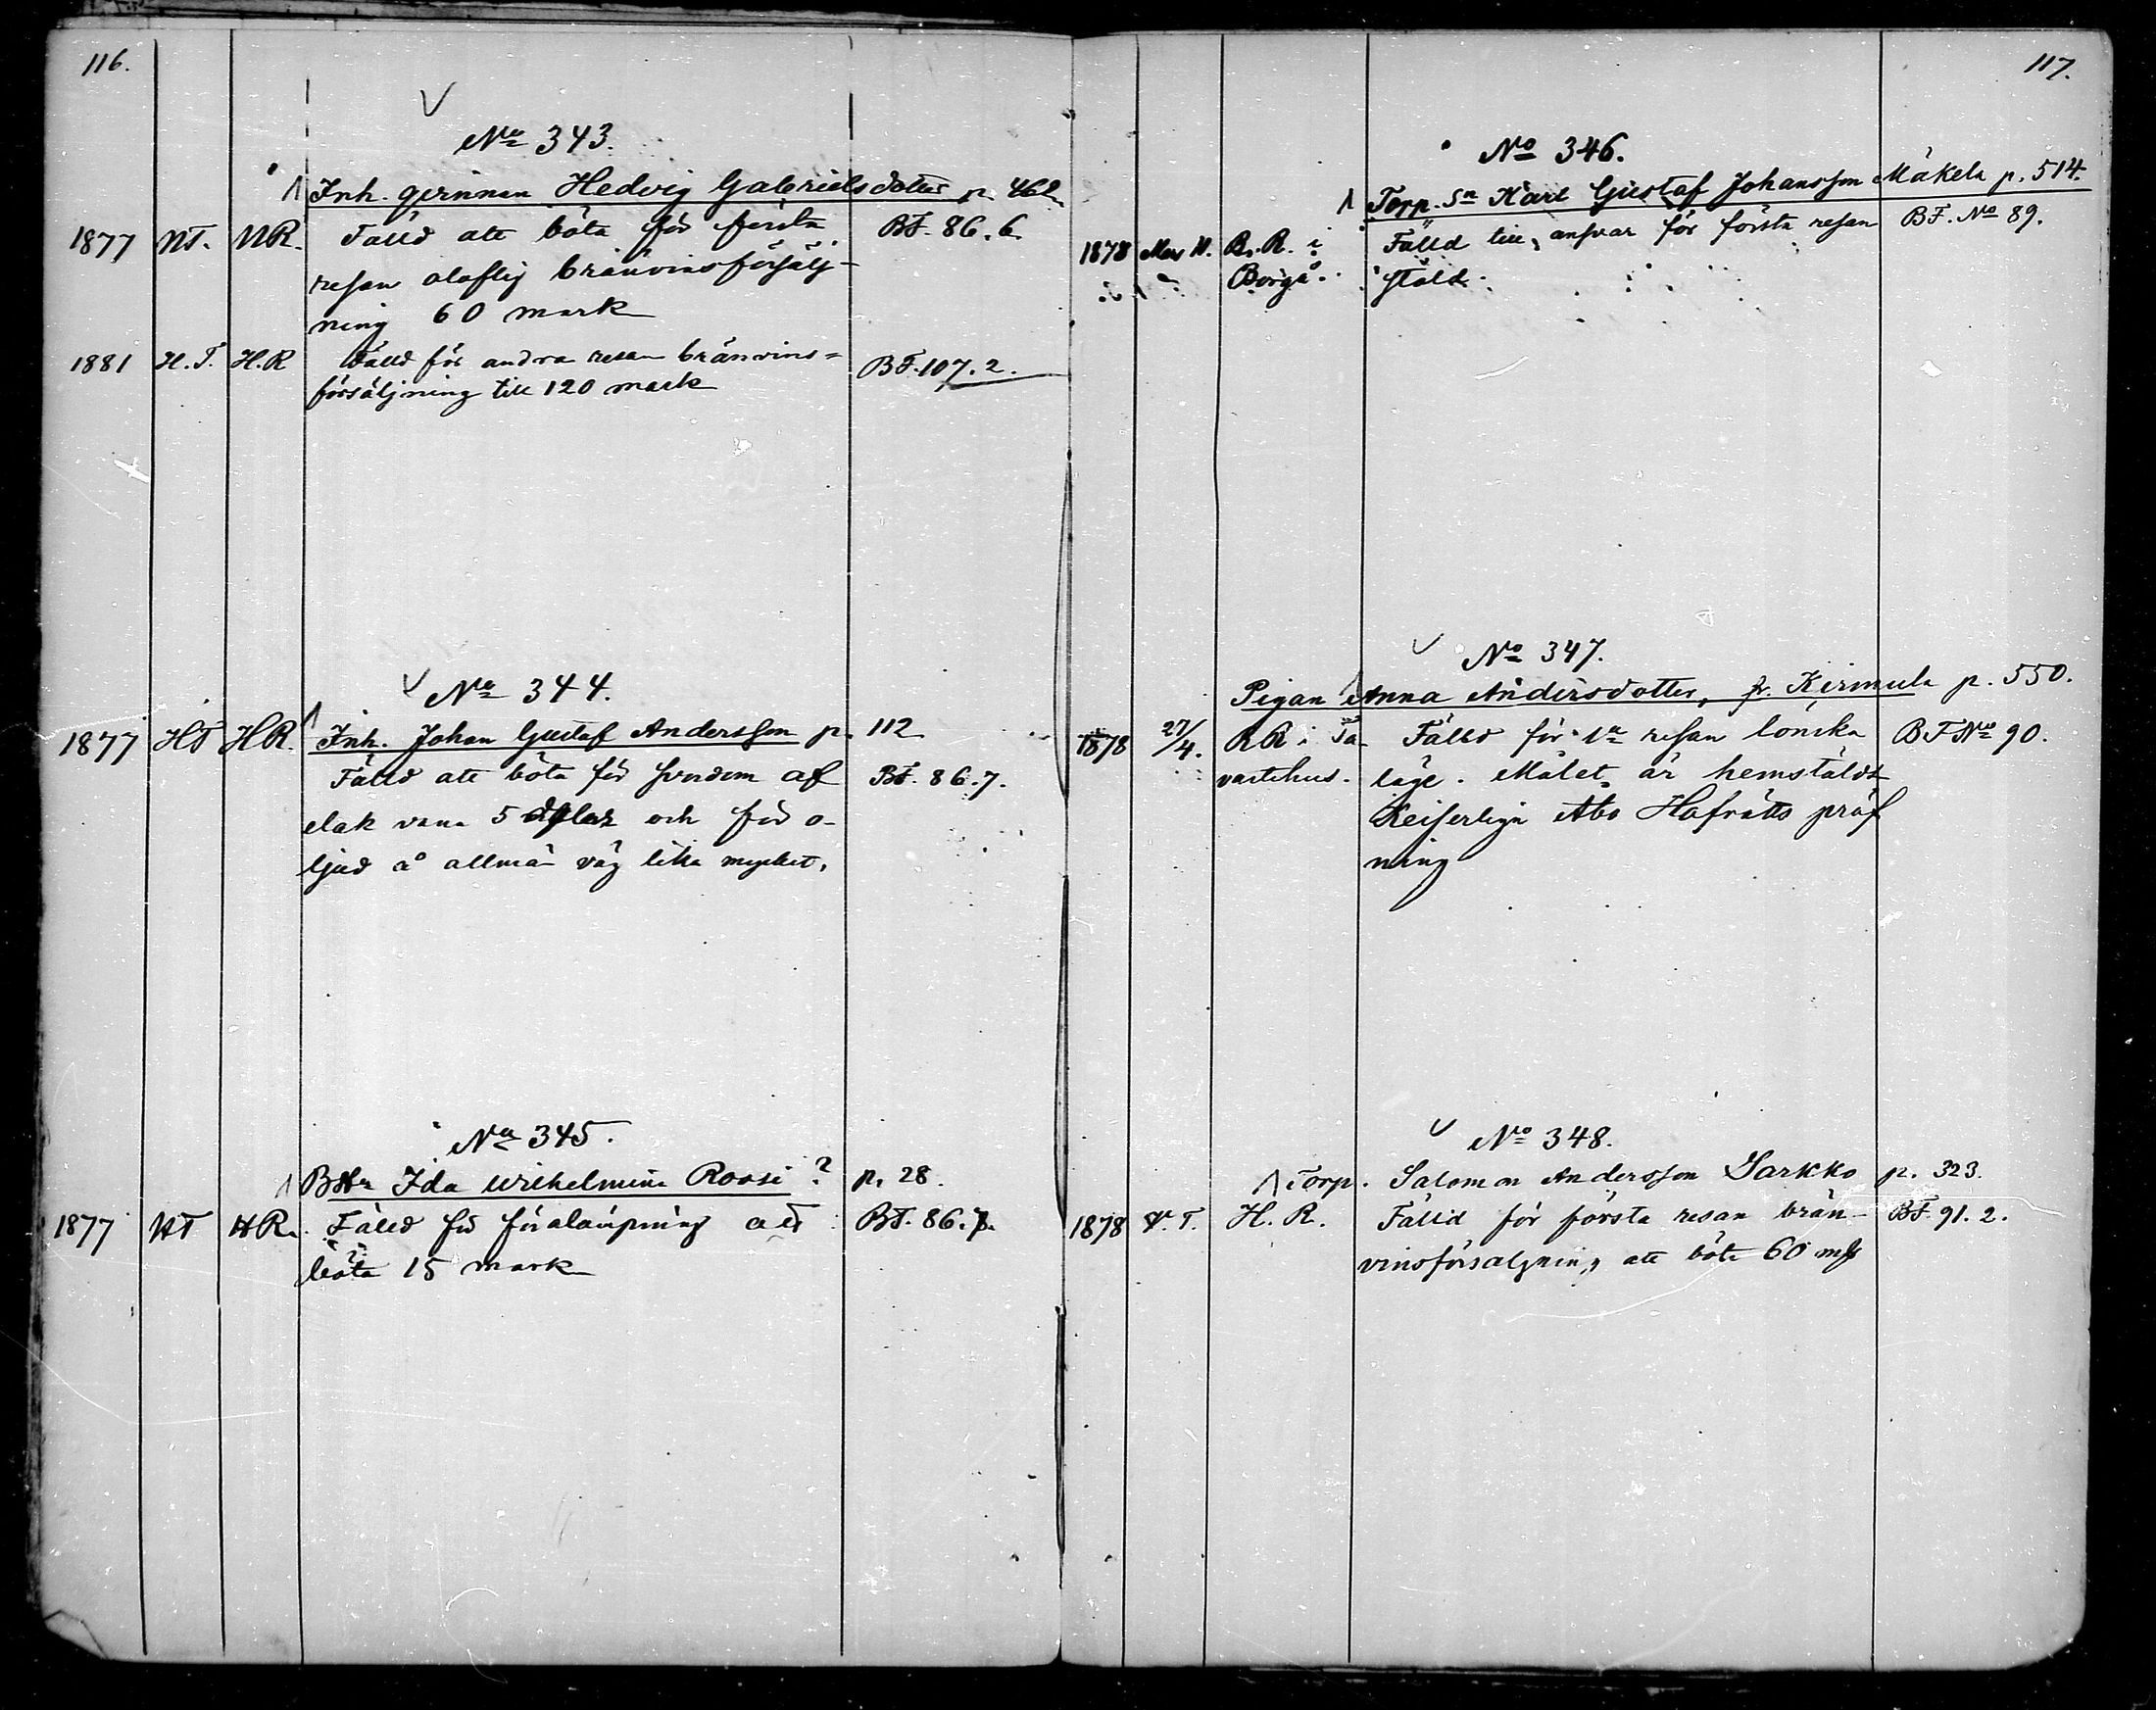 116.
No 343.
Inh. qvinnan Hedvig Gabrielsdotter p. 462
1877 HT. HR. Fälld att böta för första BF. 86.6.
resan olaflig bränvinsförsälj-
ning 60 mark
1881 H.T. H.R Fälld för andra resan bränvins= BF. 107.2.
försäljning till 120 mark
No 344.
Inh. Johan Gustaf Andersson p. 112
1877 HT HR.
Fälld att böta för svordom af BF. 86.7.
elak vana 5 och för o-
ljud å allmän väg lika mycket.
No 345.
Ida Wilhelmina Roosi? p. 28.
1877 HT HR. Fälld för att BF. 86.
böta 15 mark
117.
No 346.
Torp. Sn Karl Gustaf Johansson Mäkelä p. 514.
1878 R.R. i Fälld till ansvar för första resan BF. No 89.
Borgå. stöld.
No 347.
Pigan Anna Andersdotter, fr. Kirmula p. 550.
1878 27/4. RR i Ta- Fälld för 1a resan lönska BF No 90.
vastehus. läge. Målet är hemstäldt
Keiserliga Åbo Hofrätts pröf
ning
No 348.
Torp. Salomon Andersson Sarkko p. 323.
1878 V.T. H.R. Fälld för första resan brän- BF. 91.2.
vinsförsäljning att böta 60 mk